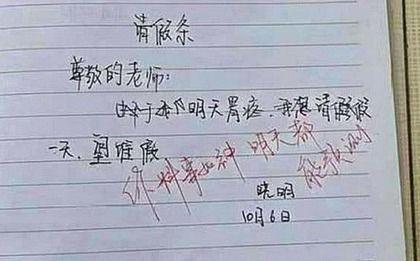 请假条
尊敬的老师:
由于我明天胃疼,我想请假
一天,望准假。
你料事如神 明天都能预测
晓明
10月6日